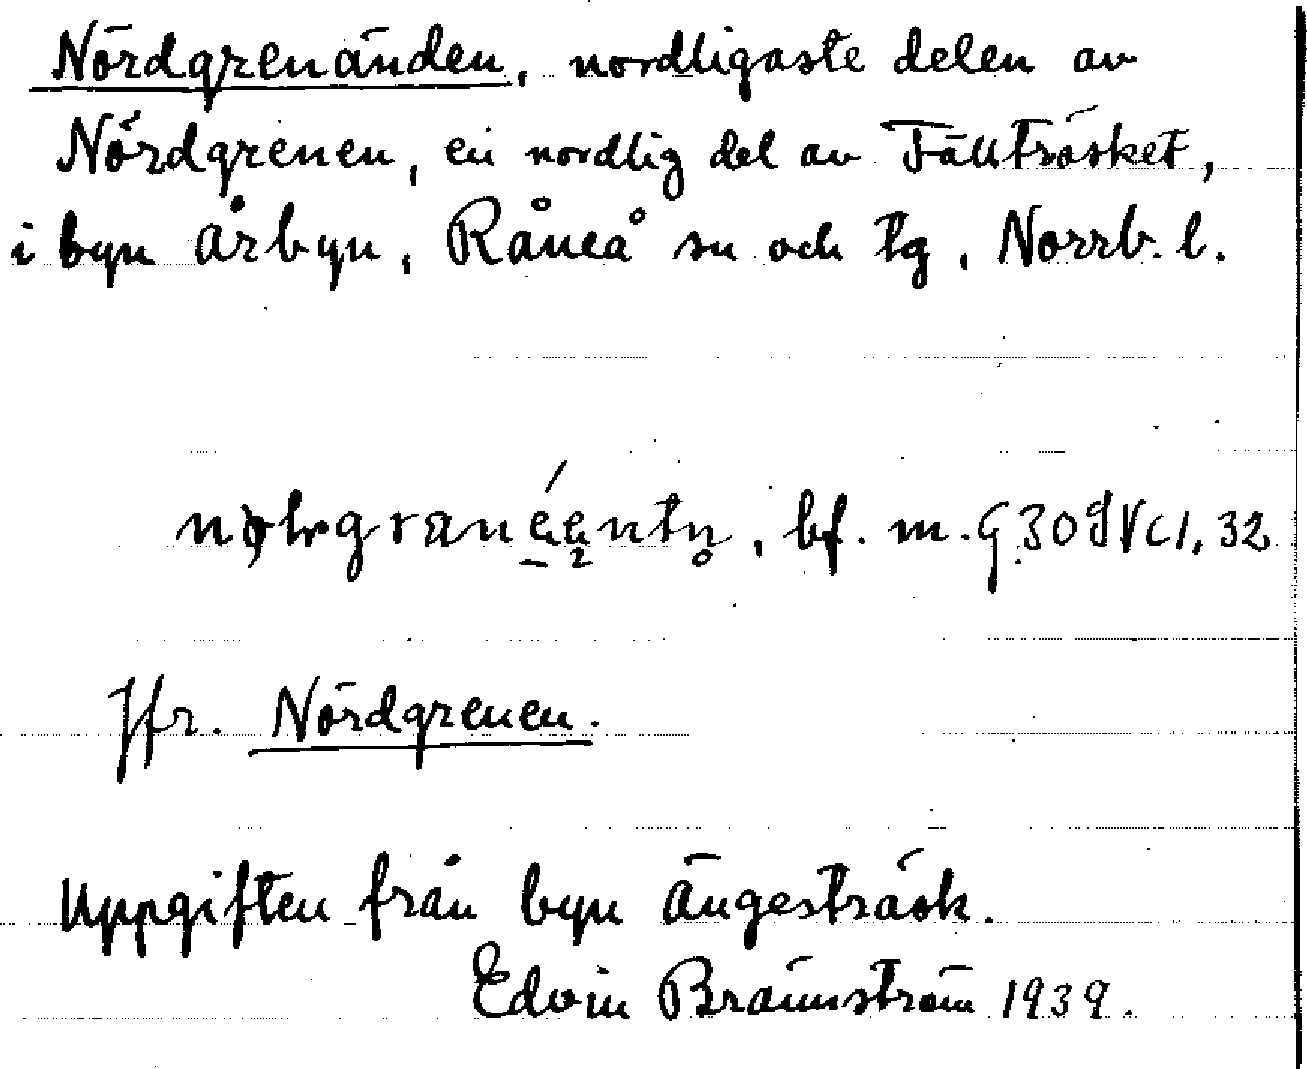 Nördgrenänden, nordligaste delen av
Nördgrenen, en nordlig del av Fällträsket,
i byn Årbyn, Råneå sn och tg, Norrb. l.
bf. m. G 30 IV c 1, 32
Jfr. Nördgrenen.
Uppgiften från byn Ängesträsk.
Edvin Brännström 1939.